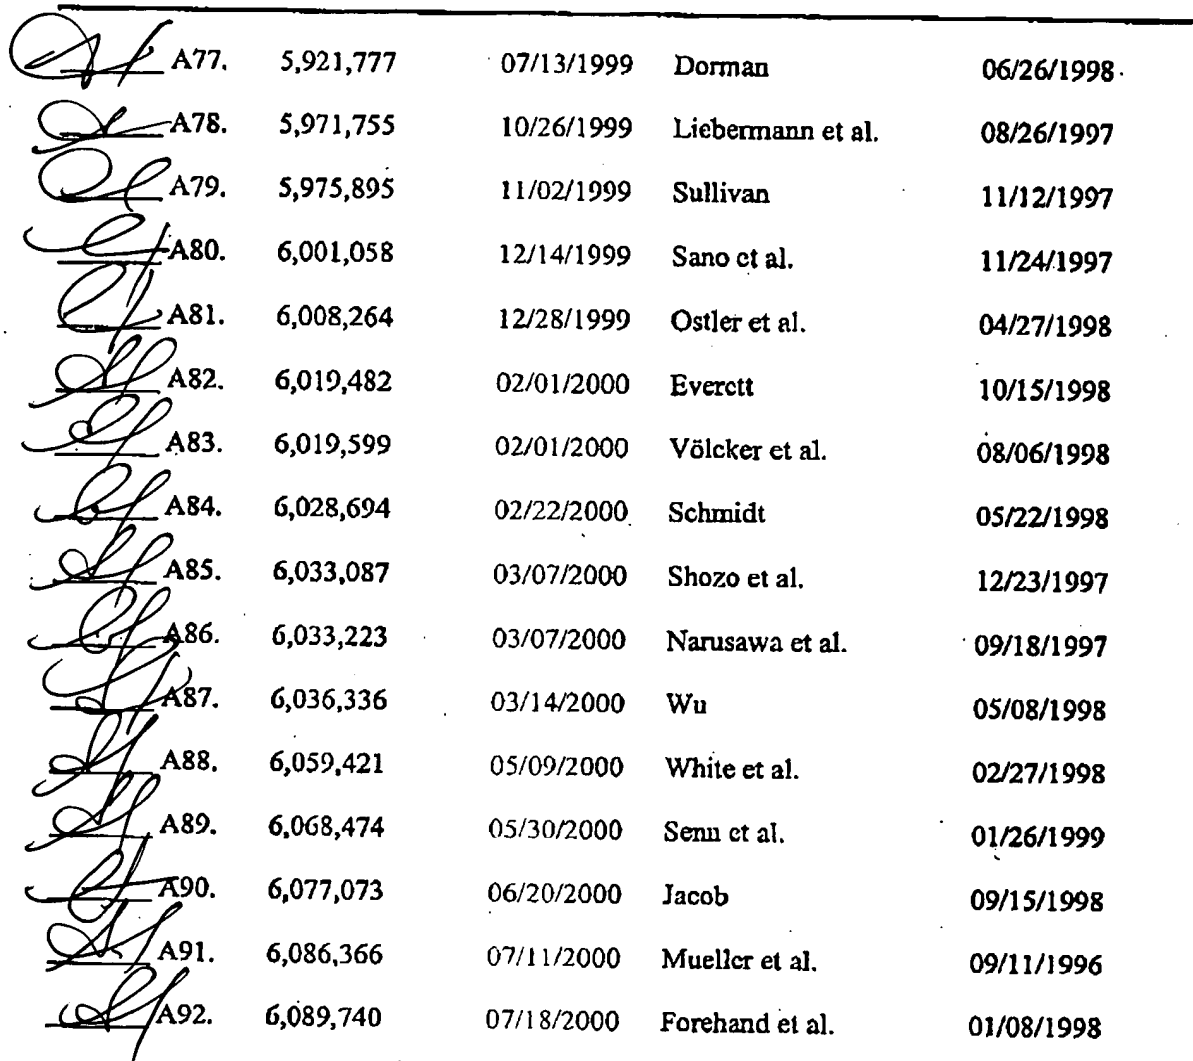 A77. 5,921,777 07/13/1999 Dorman 06/26/1998
A78. 5,971,755 10/26/1999 Liebermann et al. 08/26/1997
A79. 5,975,895 11/02/1999 Sullivan 11/12/1997
A80. 6,001,058 12/14/1999 Sano et al. 11/24/1997
A81. 6,008,264 12/28/1999 Ostler et al. 04/27/1998
A82. 6,019,482 02/01/2000 Everett 10/15/1998
A83. 6,019,599 02/01/2000 Völcker et al. 08/06/1998
A84. 6,028,694 02/22/2000 Schmidt 05/22/1998
A85. 6,033,087 03/07/2000 Shozo et al. 12/23/1997
A86. 6,033,223 03/07/2000 Narusawa et al. 09/18/1997
A87. 6,036,336 03/14/2000 Wu 05/08/1998
A88. 6,059,421 05/09/2000 White et al. 02/27/1998
A89. 6,068,474 05/30/2000 Senn et al. 01/26/1999
A90. 6,077,073 06/20/2000 Jacob 09/15/1998
A91. 6,086,366 07/11/2000 Mueller et al. 09/11/1996
A92. 6,089,740 07/18/2000 Forehand et al. 01/08/1998